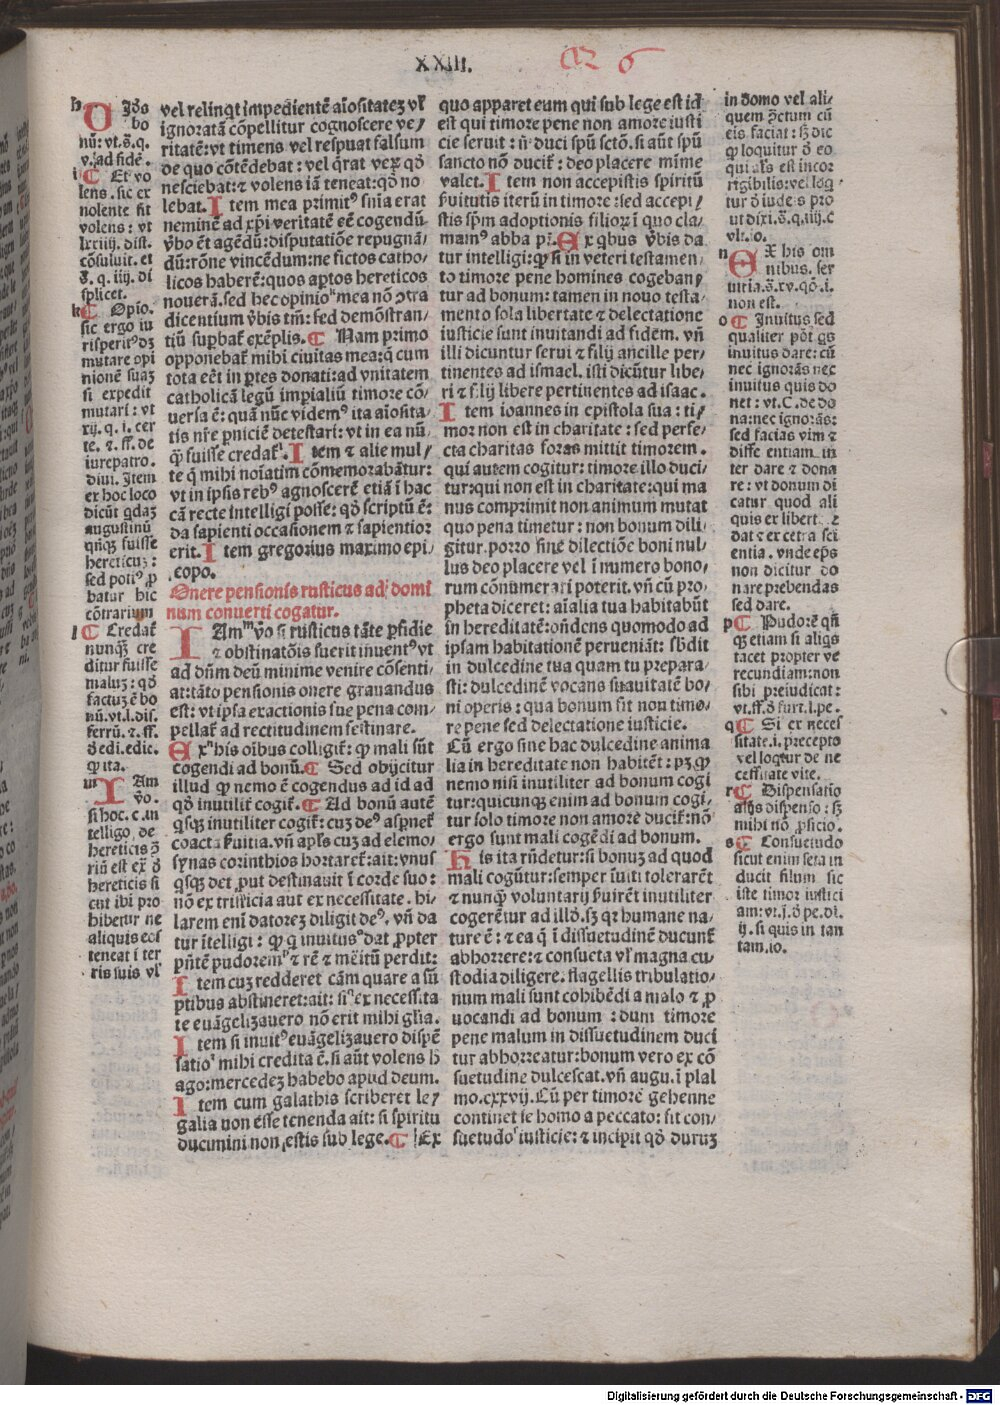 XXIII.
CZ 6
h Ad ad bo
nū: vt.s̄.q.
v. ad fidē.
i ¶ Et vo
lens. sic ex
nolente fit
volens: vt
lxiiij. dist.
cōsuluit. et
s̄. q. iiij. di
splicet.
k ¶ Opio.
sic ergo iu
risperit⁹ dꝫ
mutare opi
nionē suaꝫ
si expedit
mutari: vt
xij. q. i. cer
te. ⁊. ff. de
iurepatro.
diui. Item
ex hoc loco
dicūt qdaꝫ
augustinū
qn̄qꝫ fuisse
hereticuꝫ:
sed poti⁹ ꝓ
batur hic
cōtrarium
l ¶ Credat̄
nunqꝫ cre
ditur fuisse
maluꝫ: qō
factuꝫ ē bo
nū. vt. l. dis.
ferrū. ⁊. ff.
ō edi. edic.
ꝙ ita.
m I Am
v̄o.
si hoc. c. in
telligo de
hereticis ꝫ
riū est ex̄ ō
hereticis si
cut ibi pro
hibetur ne
aliquis eos
teneat i ter
ris suis vl̄
vel relinqt impedientē aīositateꝫ vl̄
ignoratā cōpellitur cognoscere ve/
ritatē: vt timens vel respuat falsum
de quo cōtēdebat: vel q̄rat veꝝ qō
nesciebat: ⁊ volens iā teneat: qō no
lebat. Item mea primit⁹ sn̄ia erat
neminē ad xp̄i veritatē eē cogendū
v̄bo ēt agēdū: disputatiōe repugnā/
dū: rōne vincēdum: ne fictos catho/
licos haberē: quos aptos hereticos
nouerā. sed hec opinioᵏ mea nō ꝯtra
dicentium v̄bis tm̄: sed demōstran/
tiū supbat̄ exēplis. ¶ Nam primo
opponebat̄ mihi ciuitas mea: q̄ cum
tota eēt in ꝑtes donati: ad vnitatem
catholicā legū impialiū timore cō/
uersa ē: quā nūc videm⁹ ita aīosita/
tis nr̄e ꝑniciē detestari: vt in ea nū/
ꝙ̄ fuisse credat̄ˡ. Item ⁊ alie mul/
te q̄ mihi noīatim cōmemorabātur:
vt in ipsis reb⁹ agnoscerē etiā i hac
cā recte intelligi posse: qō scriptū ē:
da sapienti occasionem ⁊ sapientior
erit. Item gregorius maximo epi/
copo.
Onere pensionis rusticus ad domi
num conuerti cogatur.
IAmᵐ v̄o si rusticus tāte ꝑfidie
⁊ obstinatōis fuerit inuent⁹ vt
ad dn̄m deū minime venire cōsenti/
at: tāto pensionis onere grauandus
est: vt ipsa exactionis sue pena com/
pellat̄ ad rectitudinem festinare.
Exⁿ his oībus colligit̄: ꝙ mali sūt
cogendi ad bonū. ¶ Sed obijcitur
illud ꝙ nemo ē cogendus ad id ad
qō inutilit̄ cogit̄. ¶ Ad bonū autē
qsqꝫ inutiliter cogit̄: cuꝫ de⁹ aspnet̄
coacta ẜuitia. vn̄ apl̄s cuꝫ ad elemo/
synas corinthios hortaret̄: ait: vnus
qsqꝫ det ꝓut destinauit i corde suo:
nō ex tristicia aut ex necessitate. hi/
larem enī datoreꝫ diligit de⁹. vn̄ da
tur intelligi: ꝙ q inuitus°dat ꝓpter
pn̄tē pudoremᵖ ⁊ rē ⁊ meritū perdit:
Item cuꝫ redderet cām quare a sū
ptibus abstineret: ait: siᑫ ex necessita
te euāgelizauero nō erit mihi gl̄ia.
Item si inuit⁹ euāgelizauero dispē
satioʳ mihi credita ē. si aūt volens h̄
ago: mercedeꝫ habebo apud deum.
Item cum galathis scriberet le/
galia non esse tenenda ait: si spiritu
ducimini non estis sub lege. ¶ Ex
quo apparet eum qui sub lege est id
est qui timore pene non amore iusti
cie seruit: n̄ duci spū sctō. si aūt spū
sancto nō ducit̄: deo placere mīme
valet. Item non accepistis spiritū
ẜuitutis iterū in timore: sed accepi/
stis sp̄m adoptionis filioꝝ i quo cla/
mam⁹ abba pr̄. Ex qbus v̄bis da
tur intelligi: ꝙ si in veteri testamen/
to timore pene homines cogeban/
tur ad bonum: tamen in nouo testa/
mento sola libertate ⁊ delectatione
iusticie sunt inuitandi ad fidem. vn̄
illi dicuntur serui ⁊ filij ancille per/
tinentes ad ismael. isti dicūtur libe/
ri ⁊ filij libere pertinentes ad isaac.
Item ioannes in epistola sua: ti/
mor non est in charitate: sed perfe/
cta charitas foras mittit timorem.
qui autem cogitur: timore illo duci/
tur: qui non est in charitate: qui ma
nus comprimit non animum mutat
quo pena timetur: non bonum dili/
gitur. porro sine dilectiōe boni nul/
lus deo placere vel i numero bono/
rum cōnumerari poterit. vn̄ cū pro/
pheta diceret: aīalia tua habitabūt
in hereditatē: on̄dens quomodo ad
ipsam habitationē perueniāt: sb̄dit
in dulcedine tua quam tu prepara/
sti: dulcedinē vocans suauitatē bo/
ni operis: qua bonum fit non timo/
re pene sed delectatione iusticie.
Cū ergo sine hac dulcedine anima
lia in hereditate non habitēt: pꝫ ꝙ
nemo nisi inutiliter ad bonum cogi
tur: quicunqꝫ enim ad bonum cogi/
tur solo timore non amore ducit̄: nō
ergo sunt mali cogēdi ad bonum.
His ita rn̄detur: si bonuꝫ ad quod
mali cogūtur: semper iuiti tolerarēt
⁊ nunꝙ̄ voluntarij ẜuirēt inutiliter
cogerētur ad illō. sꝫ qꝛ humane na/
ture ē: ⁊ ea q̄ i dissuetudinē ducunt̄
abhorrere: ⁊ consueta vl̄ magna cu/
stodia diligere: flagellis tribulatio/
num mali sunt cohibēdi a malo ⁊ ꝓ
uocandi ad bonum: dum timore
pene malum in dissuetudinem duci
tur abhorreatur: bonum vero ex cō
suetudine dulcescat. vn̄ augu. i psal
mo. cxxvij. Cū per timorē gehenne
continet se homo a peccato: fit con/
suetudoˢ iusticie: ⁊ incipit qō duruꝫ
in domo vel ali/
quem ꝑctum cū
eis faciat: sꝫ dic
ꝙ loquitur ō eo
qui al̄s est incor
rigibilis: vel loq̄
tur ō iudeis pro
ut dixi. s̄. q. iiij. c
vlt. io.
n EX his om
nibus. ser
uitia. s̄. xv. qō. i.
non est.
o ¶ Inuitus sed
qualiter pōt qs
inuitus dare: cū
nec ignorās nec
inuitus quis do
net: vt. C. de do
na: nec ignorās:
sed facias vim ⁊
differentiam in
ter dare ⁊ dona
re: vt donum di
catur quod ali
quis ex libert
dat ⁊ ex certa sci
entia. vnde ep̄s
non dicitur do
nare prebendas
sed dare.
p ¶ Pudorē qn̄
qꝫ etiam si aliqs
tacet propter ve
recundiam: non
sibi preiudicat:
vt. ff. ō furt. l. pe.
q ¶ Si ex neces
sitate. i. precepto
vel loqtur de ne
cessitate vite.
r ¶ Dispensatio
alijs dispenso: sꝫ
mihi nō ꝓficio.
s ¶ Consuetudo
sicut enim seta in
ducit filum sic
iste timor iustici
am: vt. j. ō pe. di.
ij. si quis in tan
tam. io.
Digitalisierung gefördert durch die Deutsche Forschungsgemeinschaft - DFG